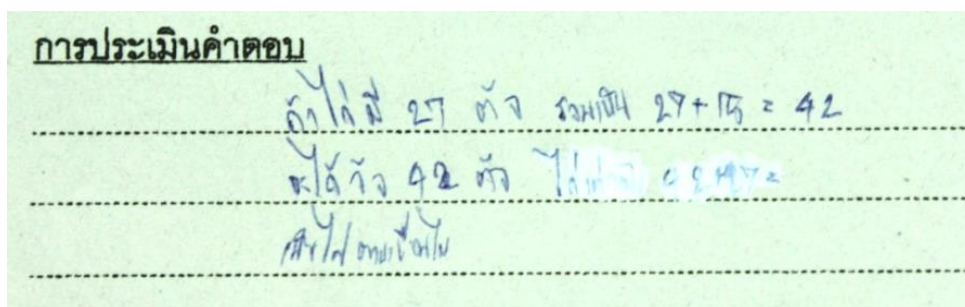 การประเมินคำตอบ
ถ้าไก่มี 27 ตัว รวมเป็น 27+15 = 42
จะได้วัว 42 ตัว
เป็นไปตามเงื่อนไข